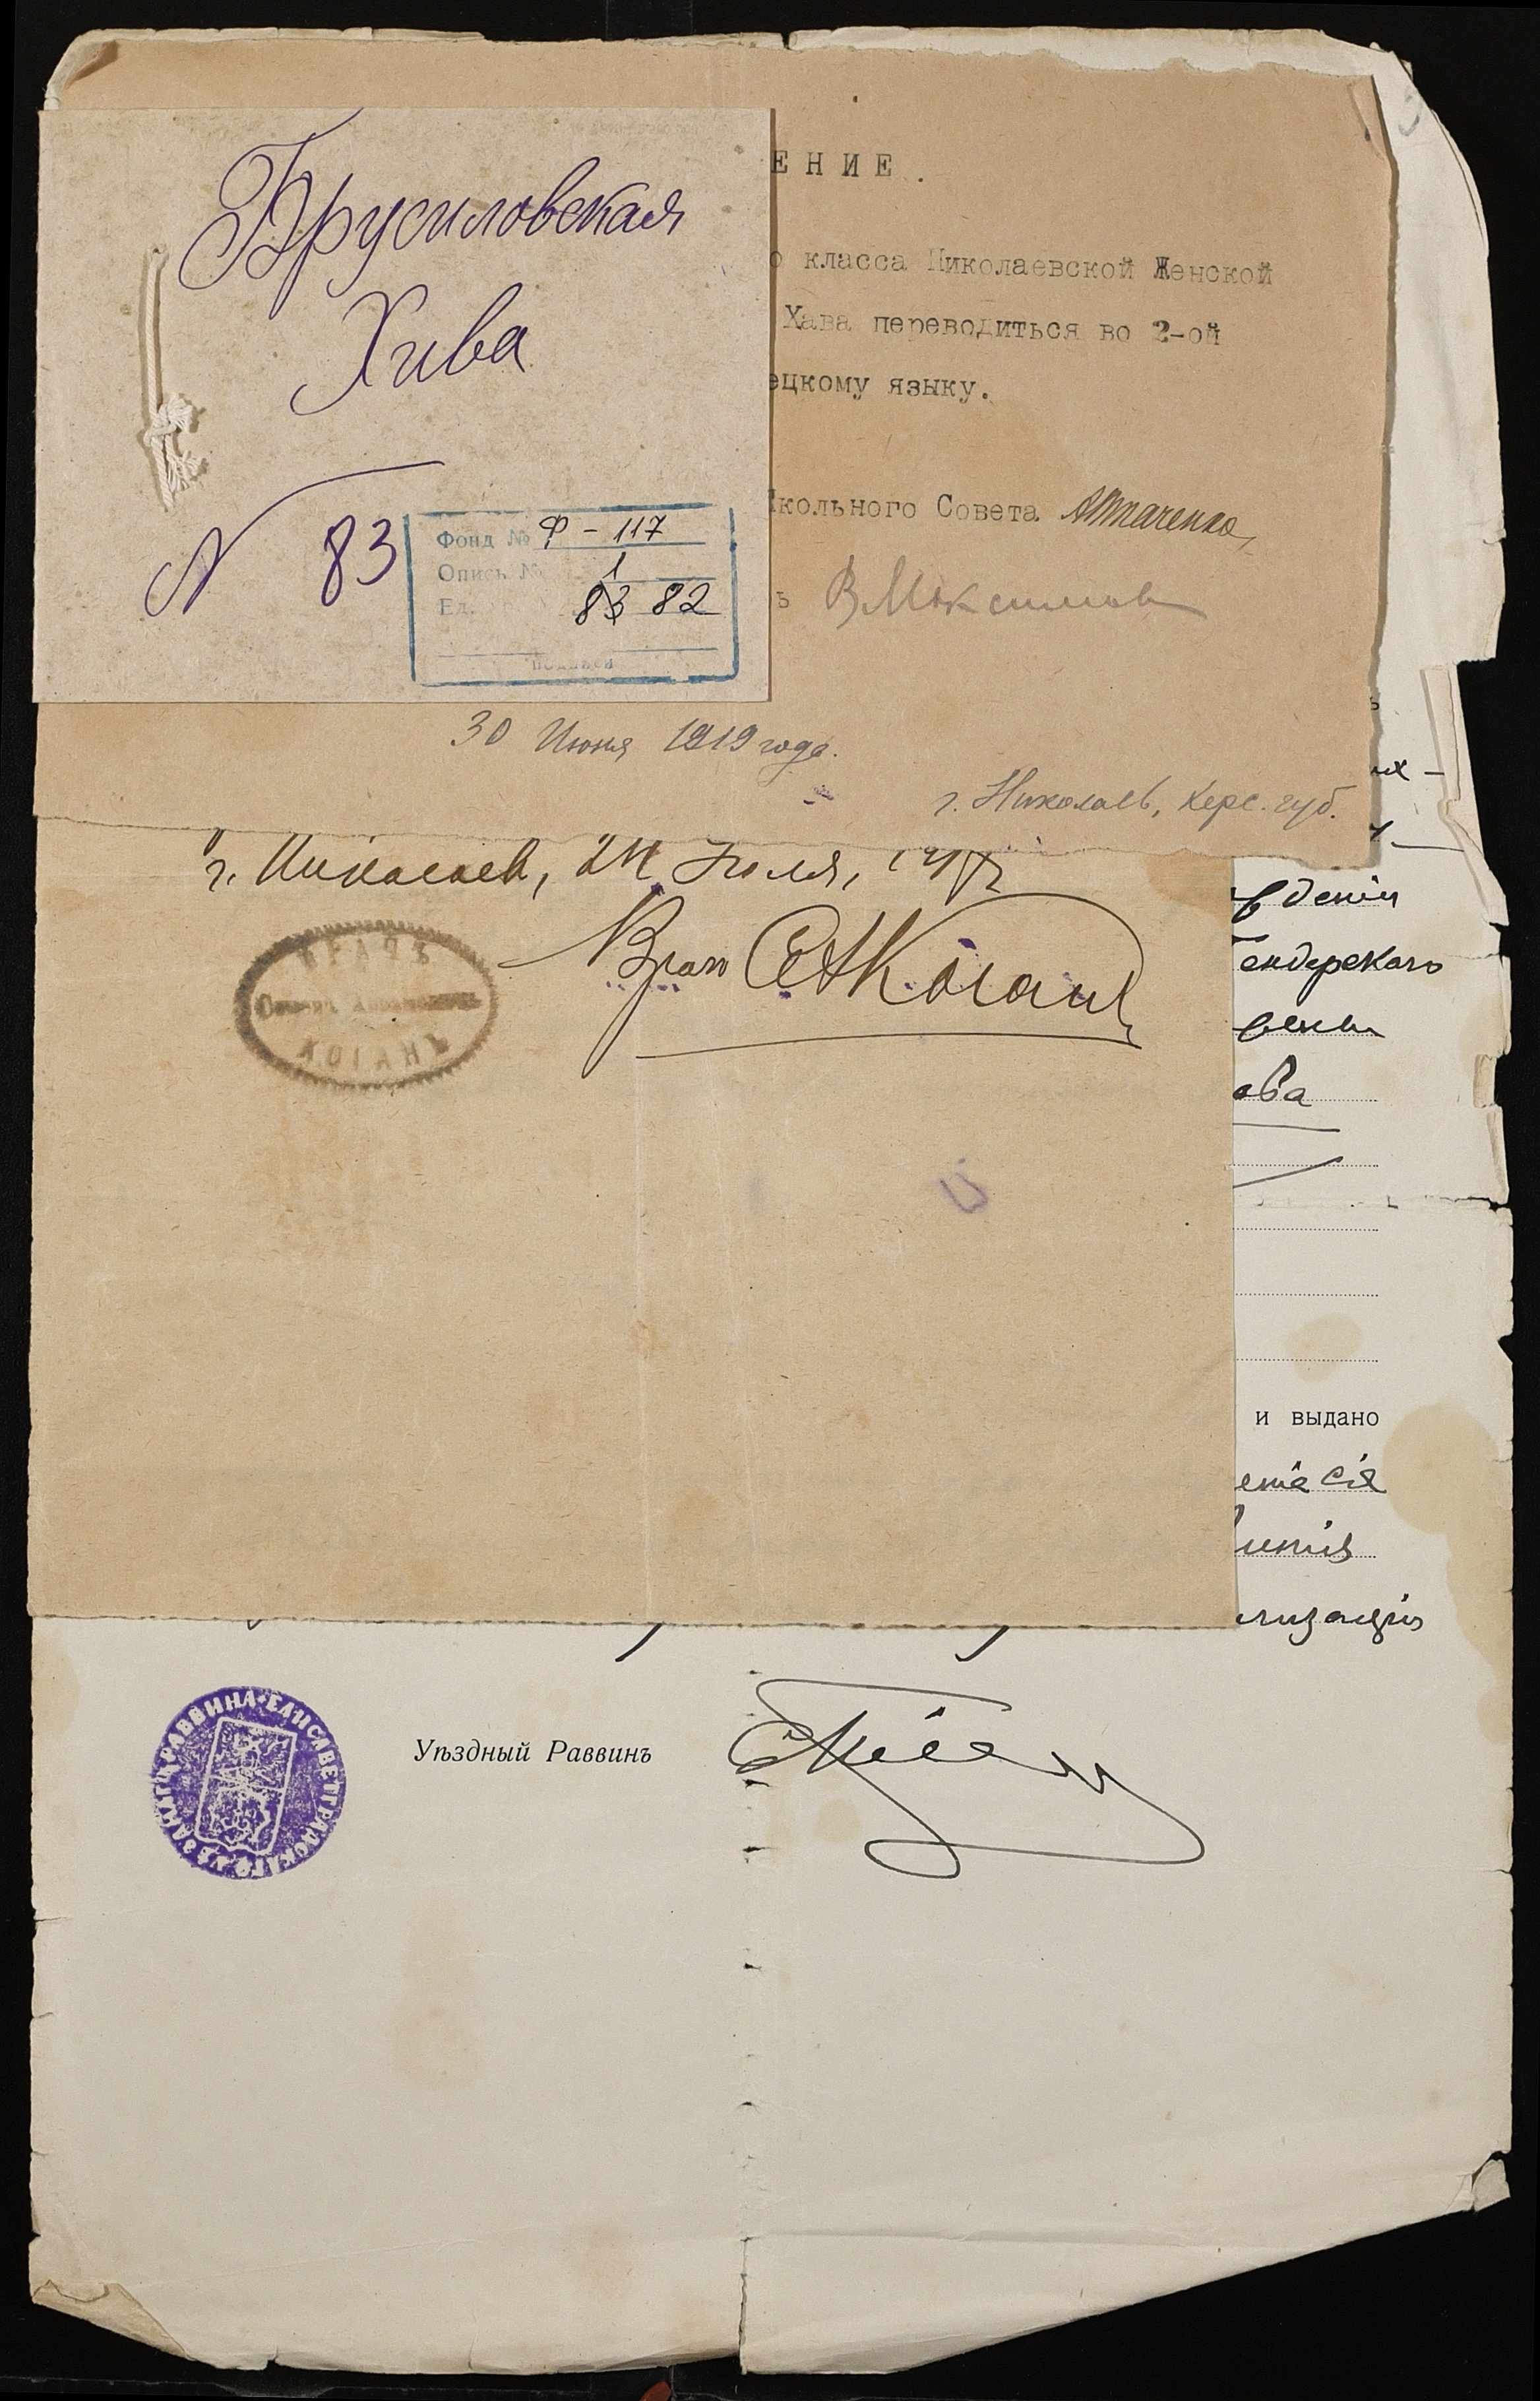 Брусиловская
Хива
N 83
Фонд № Ф-117
Опись № 1
Ед. 83 82
подписи
ЕНИЕ.
о класса Николаевской Женской
Хава переводиться во 2-ой
ецкому языку.
кольного Совета АТкаченко
ъ ВМаксимов
30 Июня 1919 года.
г. Николаевъ, Херс. губ.
г. Николаев, 24 Июля,
Врач Коган
ВРАЧЪ
КОГАНЪ
дении
ендерскаго
ова
и выдано
ение сіе
Уѣздный Раввинъ
РАВВИНА ЕЛИСАВЕТГРАДСКАГО